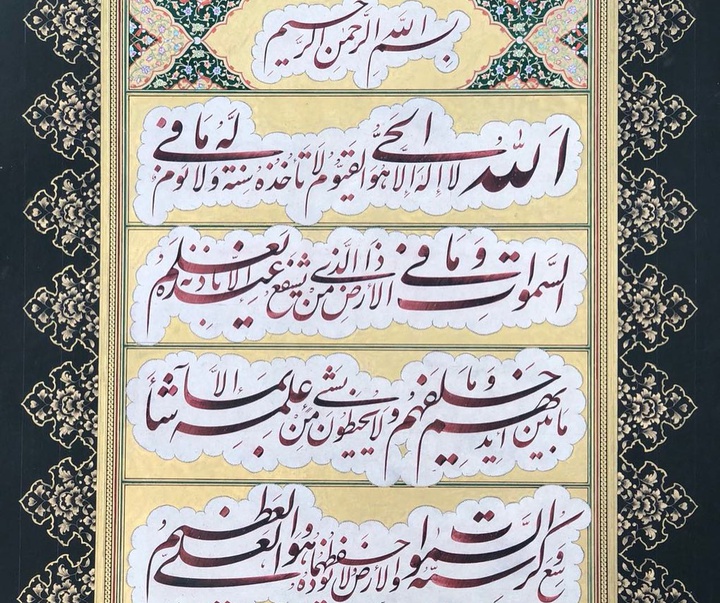 بسم الله الرحمن الرحیم
الله لا اله الا هو الحی القیوم لا تأخذه سنة ولا نوم له ما فی
السموات و ما فی الارض من ذا الذی یشفع عنده الا باذنه یعلم
ما بین ایدیهم و ما خلفهم ولا یحیطون بشی من علمه الا بما شآء
وسع کرسیه السموات والارض ولا یؤده حفظهما وهو العلی العظیم